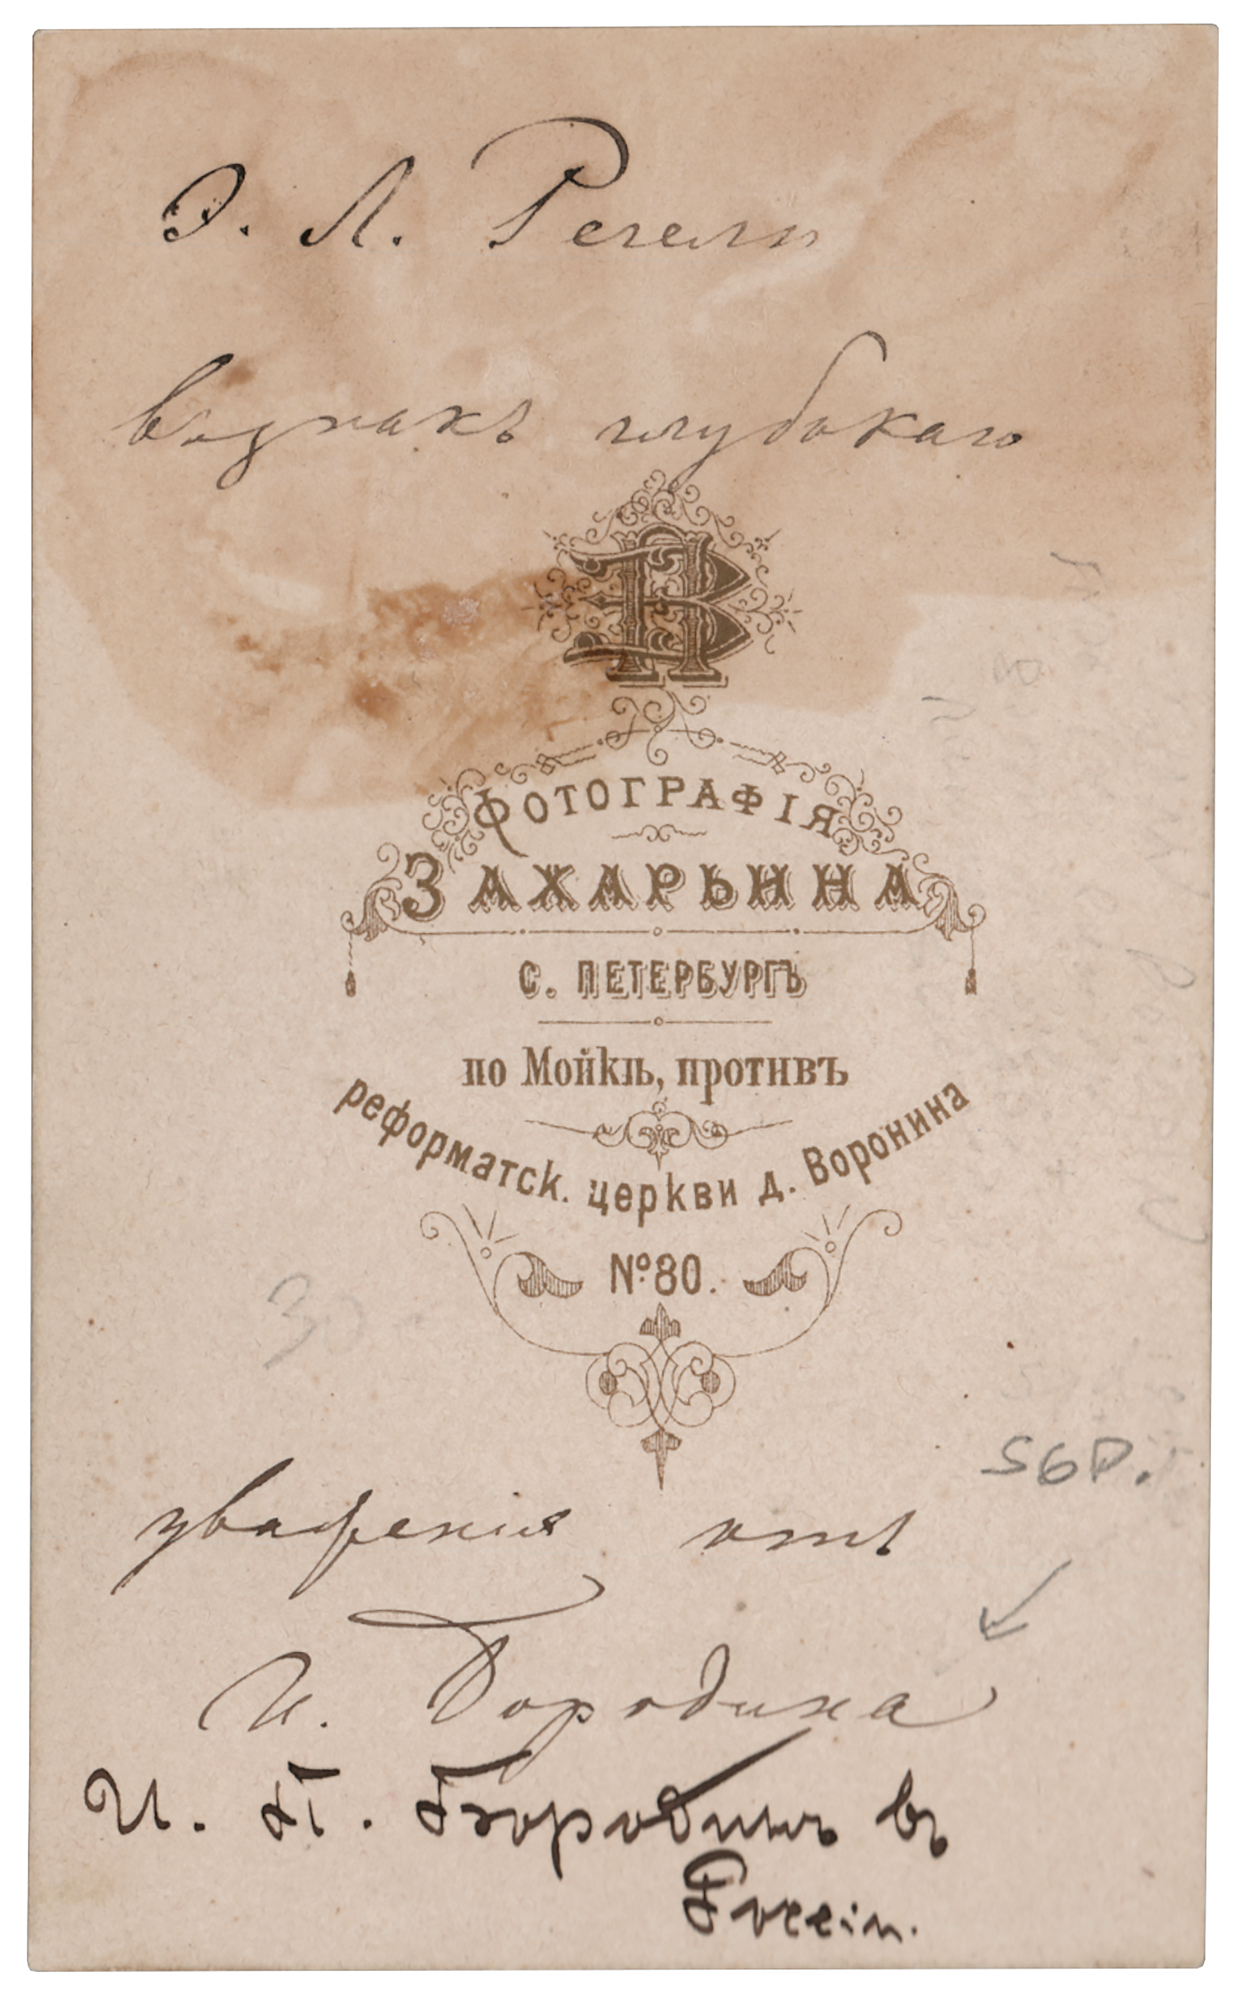 Э. Л. Регелю
въ знакъ глубокаго
ФОТОГРАФІЯ
ЗАХАРЬИНА
С. ПЕТЕРБУРГЪ
по Мойкѣ, противъ
реформатск. церкви д. Воронина
№ 80.
30
S6P.
уваженія отъ
И. Бородина
И. П. Бородинъ въ
Россіи.